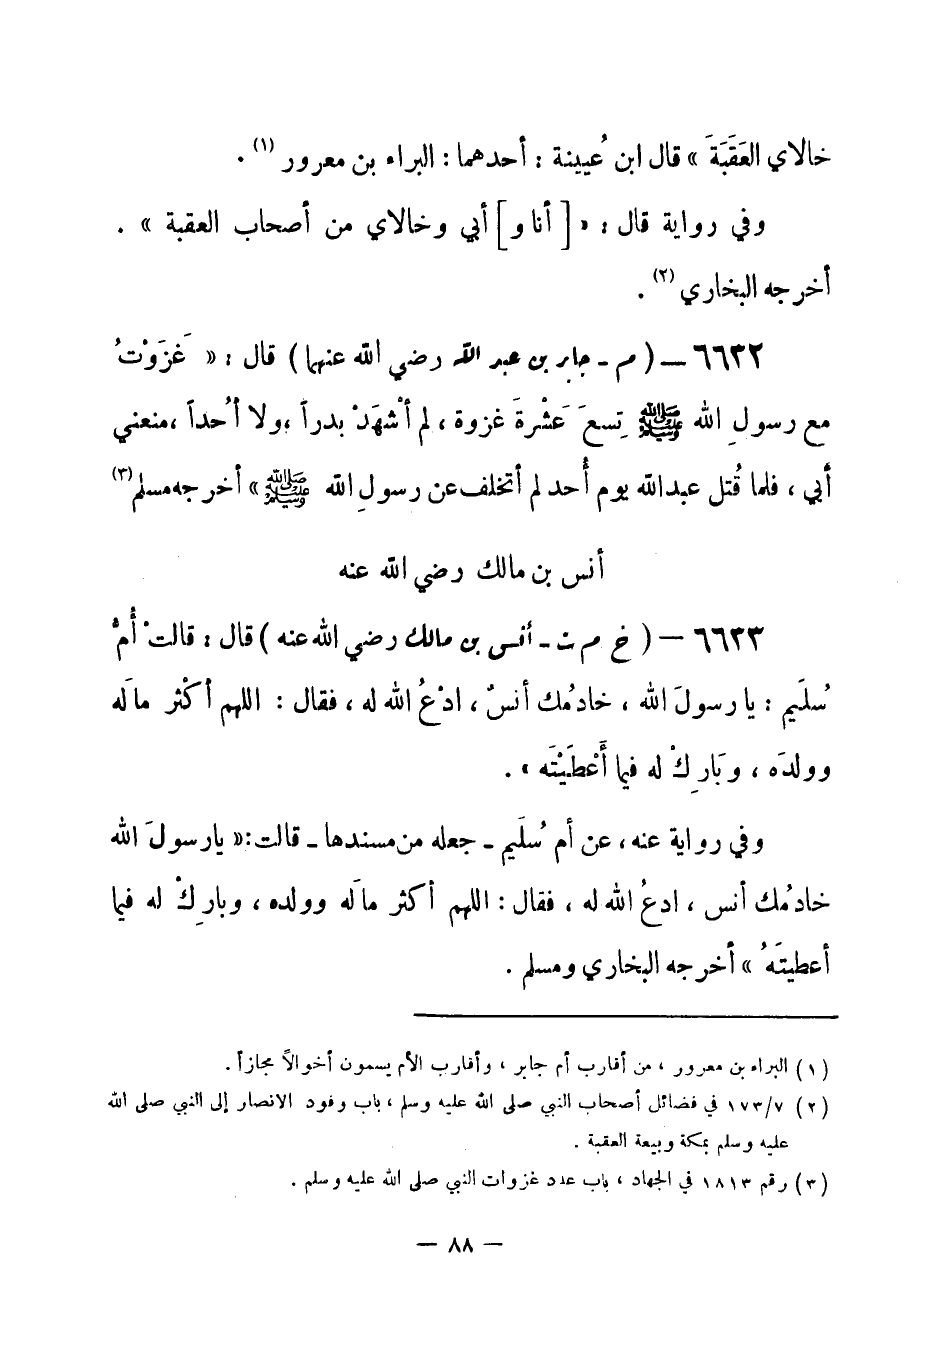 خالاي العَقَبَةَ » قال ابن عُيينة : أحدهما : البراء بن معرور (١) .
وفي رواية قال : « [ أنا و ] أبي وخالاي من أصحاب العقبة » .
أخرجه البخاري (٢) .
٦٦٣٢ – ( م - جابر بن عبد الله رضي الله عنهما ) قال : « غَزَوْتُ
مع رسولِ الله ﷺ تِسعَ عَشْرةَ غزوة ، لم أشْهَدْ بدراً ، ولا أُحداً ، منعني
أبي ، فلما قُتل عبد الله يوم أُحد لم أتخلف عن رسولِ الله ﷺ » أخرجه مسلم (٣)
أنس بن مالك رضي الله عنه
٦٦٣٣ – ( خ م ت - أنس بن مالك رضي الله عنه ) قال : قالتْ أُمُّ
سُلَيم : يا رسولَ الله ، خادمُك أنسٌ ، ادْعُ الله له ، فقال : اللهم أكْثر مالَه
وولدَه ، وبَارِكْ له فيما أَعْطَيْتَه » .
وفي رواية عنه ، عن أم سُلَيم - جعله من مسندها - قالت : « يا رسولَ الله
خادمُك أنس ، ادعُ الله له ، فقال : اللهم أكثر مالَه وولده ، وبارِكْ له فيما
أعطيتَهُ » أخرجه البخاري ومسلم .
(١) البراء بن معرور ، من أقارب أم جابر ، وأقارب الأم يسمون أخوالاً مجازاً .
(٢) ١٧٣/٧ في فضائل أصحاب النبي صلى الله عليه وسلم ، باب وفود الانصار إلى النبي صلى الله
عليه وسلم بمكة وبيعة العقبة .
(٣) رقم ١٨١٣ في الجهاد ، باب عدد غزوات النبي صلى الله عليه وسلم .
– ٨٨ –